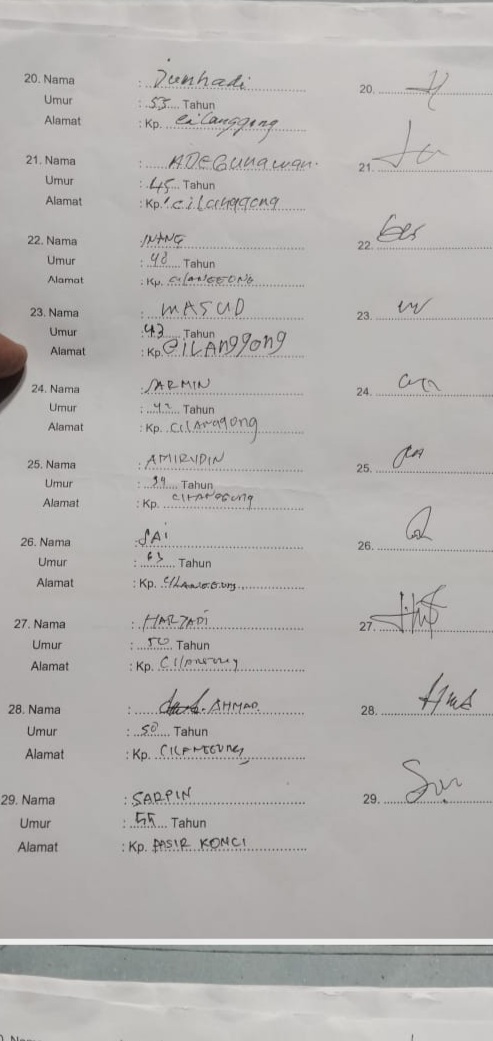 20. Nama : Junhadi 20.
Umur : 53 Tahun
Alamat : Kp. Cilanggong
21. Nama : ADE Gunawan. 21.
Umur : 45 Tahun
Alamat : Kp. Cilanggong
22. Nama : 22.
Umur : 48 Tahun
Alamat : Kp.
23. Nama : MASUD 23.
Umur : 43 Tahun
Alamat : Kp. CILANggong
24. Nama : SARMIN 24.
Umur : Tahun
Alamat : Kp. CILANggong
25. Nama : AMIRUDIN 25.
Umur : 39 Tahun
Alamat : Kp.
26. Nama : SAi 26.
Umur : 63 Tahun
Alamat : Kp.
27. Nama : HARJADi 27.
Umur : 50 Tahun
Alamat : Kp.
28. Nama : AHMAD 28.
Umur : 50 Tahun
Alamat : Kp.
29. Nama : SARPIN 29.
Umur : 55 Tahun
Alamat : Kp. PASIR KONCI